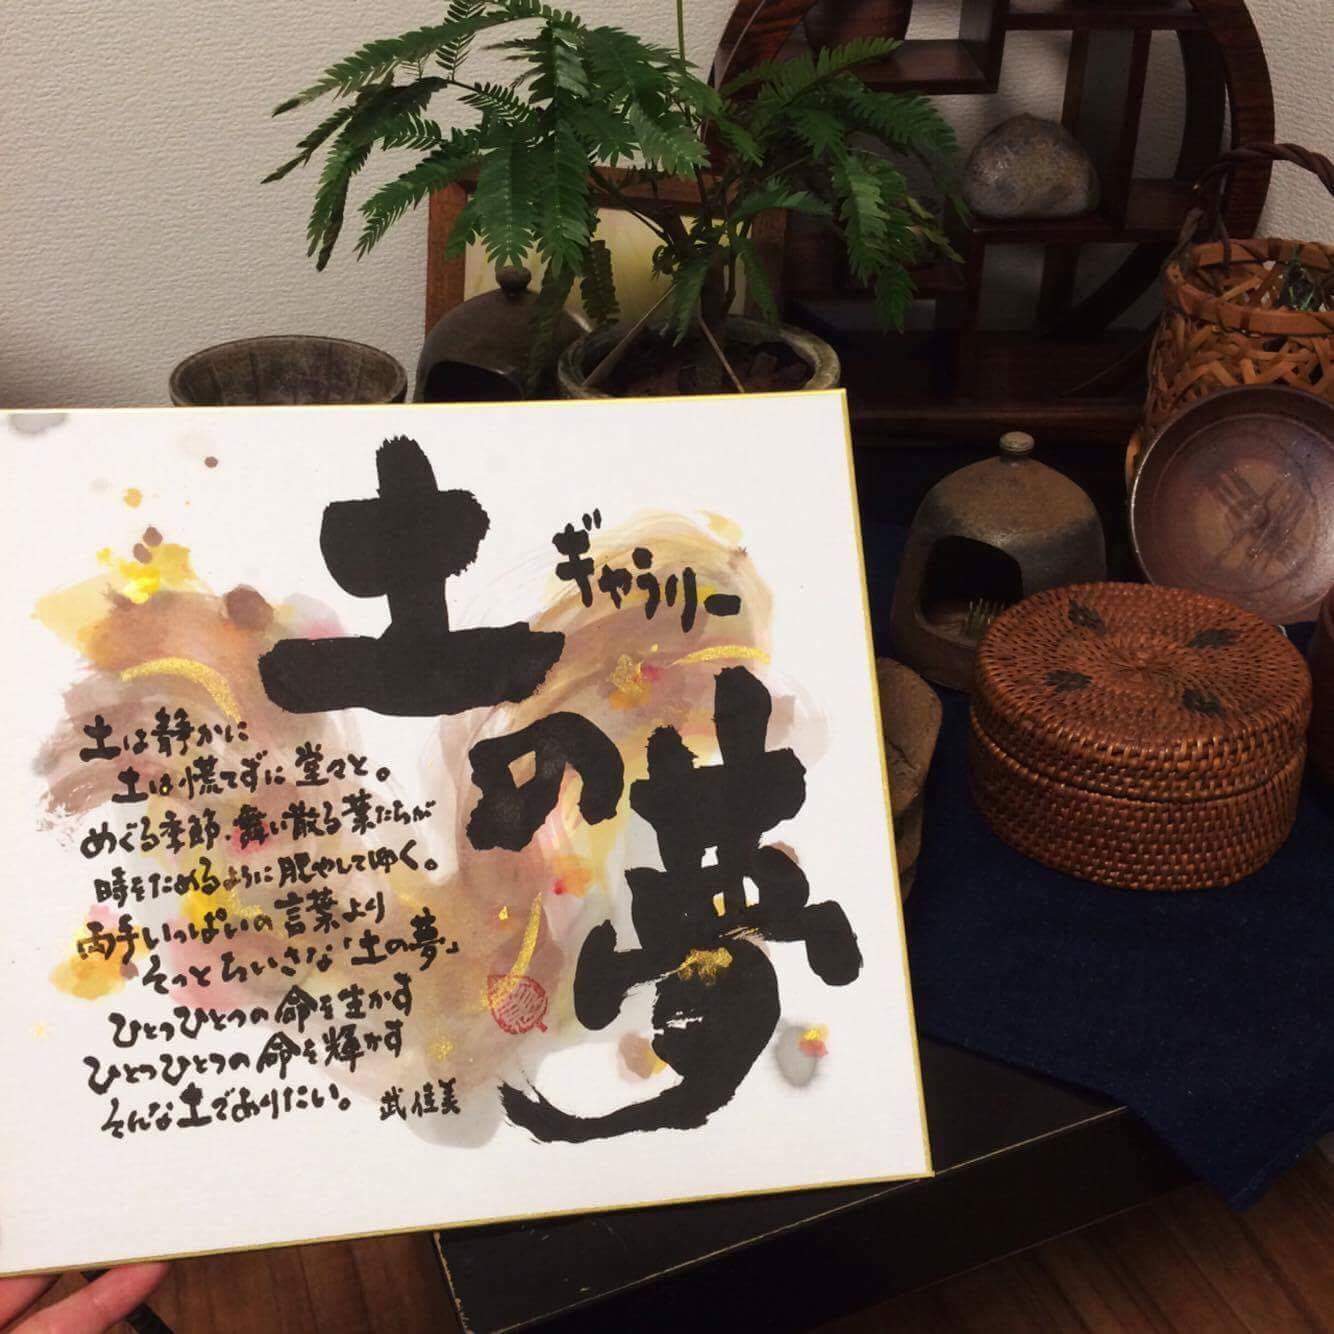 ギャラリー
土の夢
土は静かに
土は慌てずに堂々と。
めぐる季節・舞い散る葉たちが
時をためるように肥やしてゆく。
両手いっぱいの言葉より
そっとちいさな「土の夢」
ひとつひとつの命を生かす
ひとつひとつの命を輝かす
そんな土でありたい。 武佳美